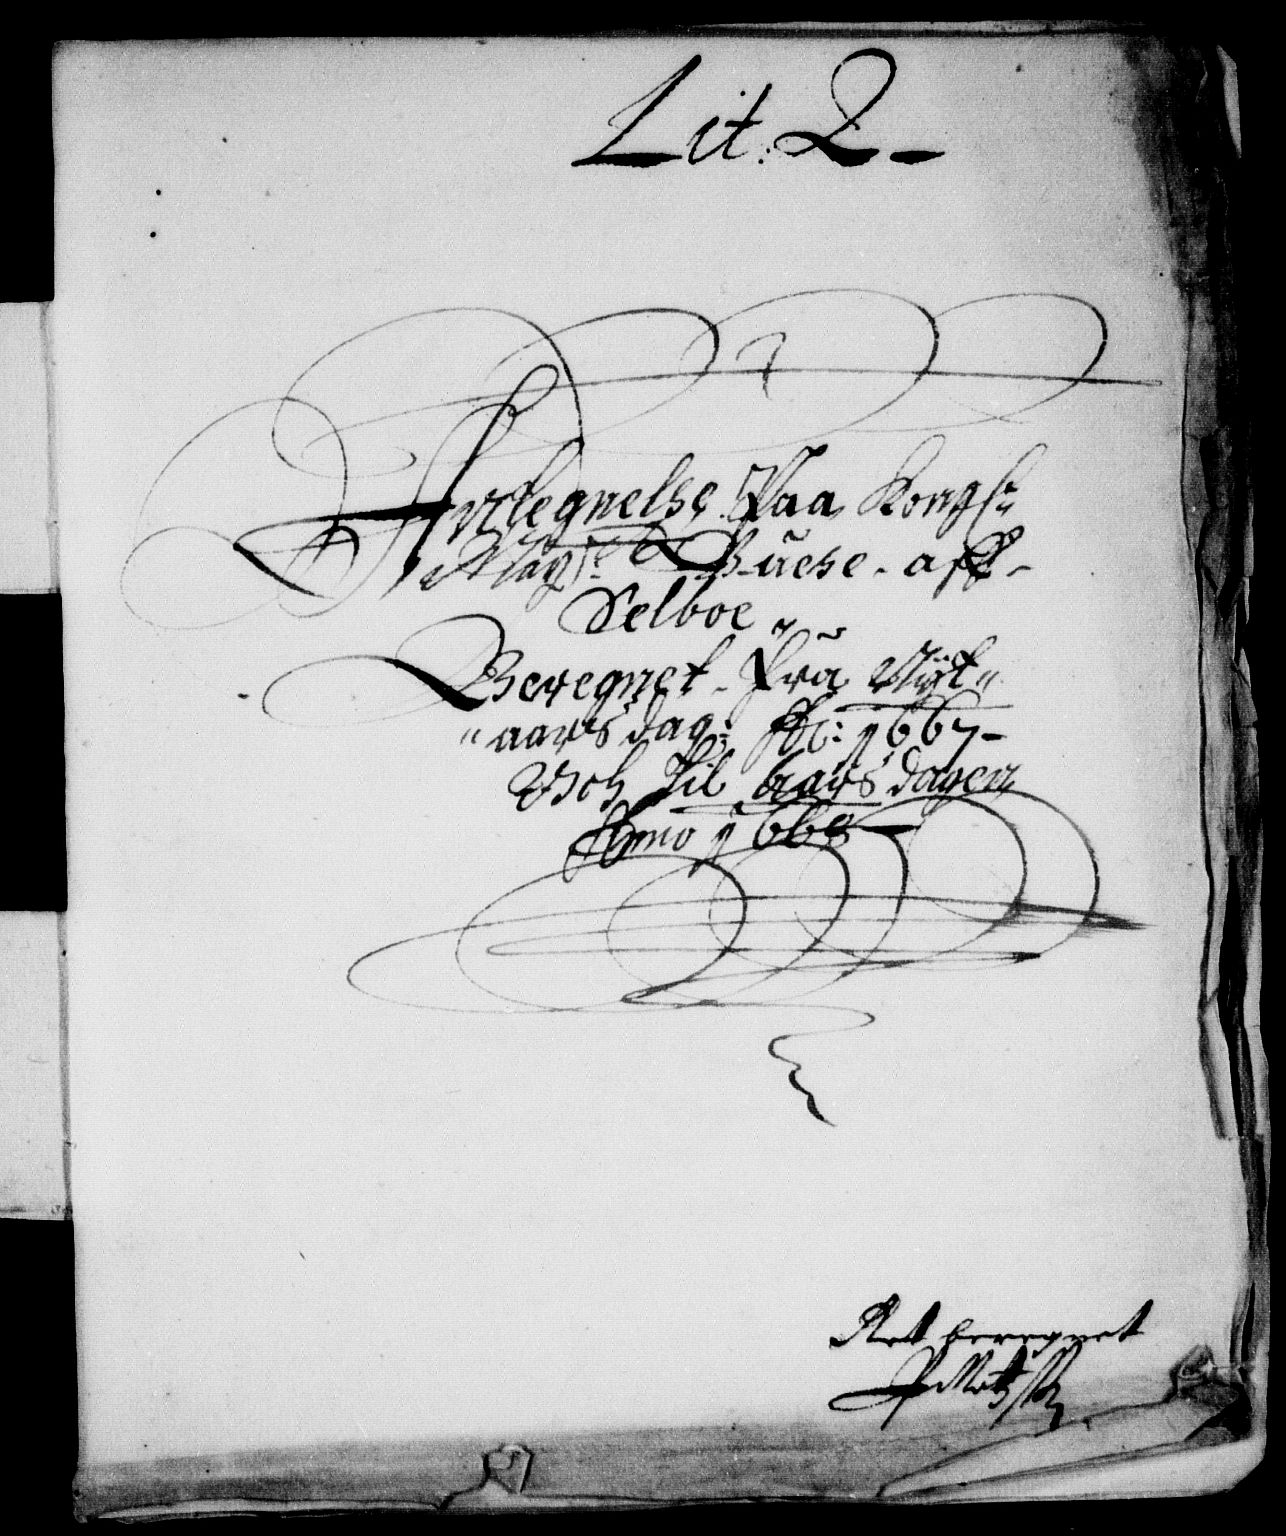 Lit: Q
Affregnelse Paa Kongl:
Mayst: Buese aff
Selboe
Beregnet Fra Nÿt
aarsdag: Ao: 1667
Och Til Aarsdagen
Anno 1668
Rett beregnet